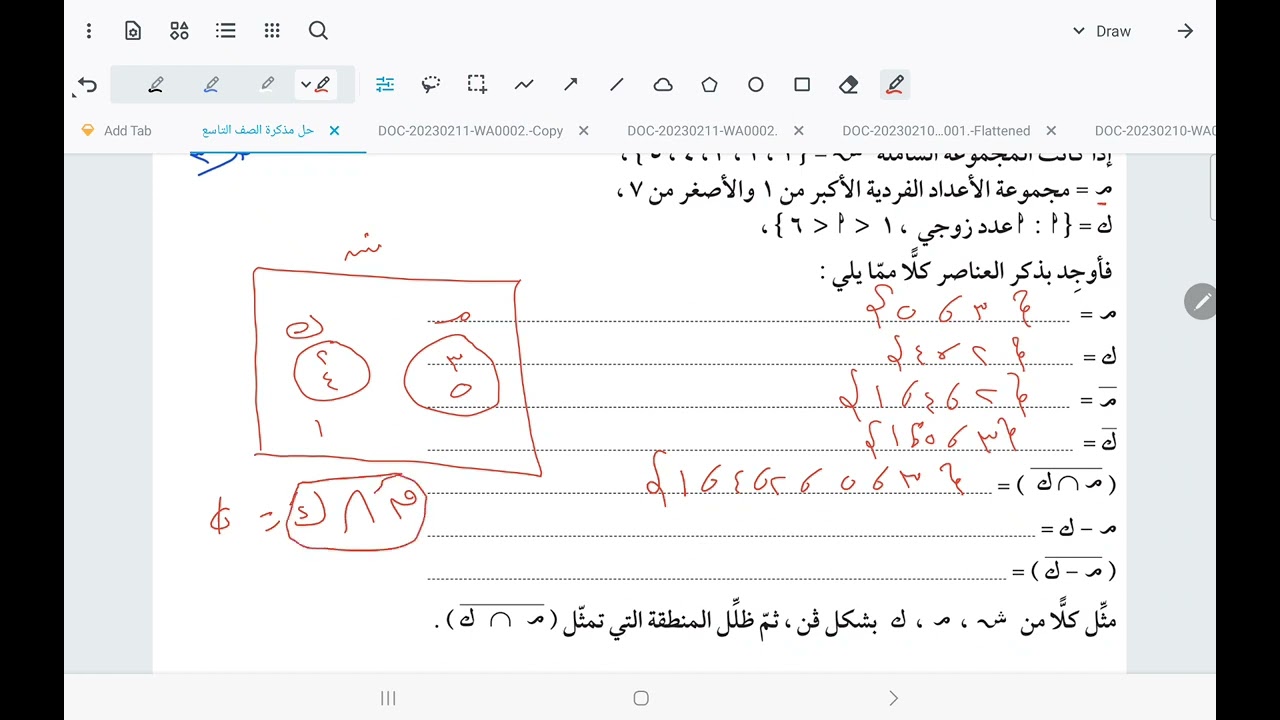 Draw
Add Tab
حل مذكرة الصف التاسع
DOC-20230211-WA0002.-Copy
DOC-20230211-WA0002.
DOC-20230210...001.-Flattened
DOC-20230210-WA0
إذا كانت المجموعة الشاملة ش = {
م = مجموعة الأعداد الفردية الأكبر من ١ والأصغر من ٧ ،
ك = { أ : أ عدد زوجي ، ١ < أ < ٦ } ،
فأوجِد بذكر العناصر كلًّا ممّا يلي :
م = { ٣ ، ٥ }
ك = { ٢ ، ٤ }
م̅ = { ٢ ، ٤ ، ١ }
ك̅ = { ٣ ، ٥ ، ١ }
( م ∩ ك )̅ = { ٣ ، ٥ ، ٢ ، ٤ ، ١ }
م − ك =
( م − ك )̅ =
مثِّل كلًّا من ش ، م ، ك بشكل ڤن ، ثمّ ظلِّل المنطقة التي تمثّل ( م ∩ ك )̅ .
ش
م
ك
٣
٥
٢
٤
١
م ∩ ك = ϕ